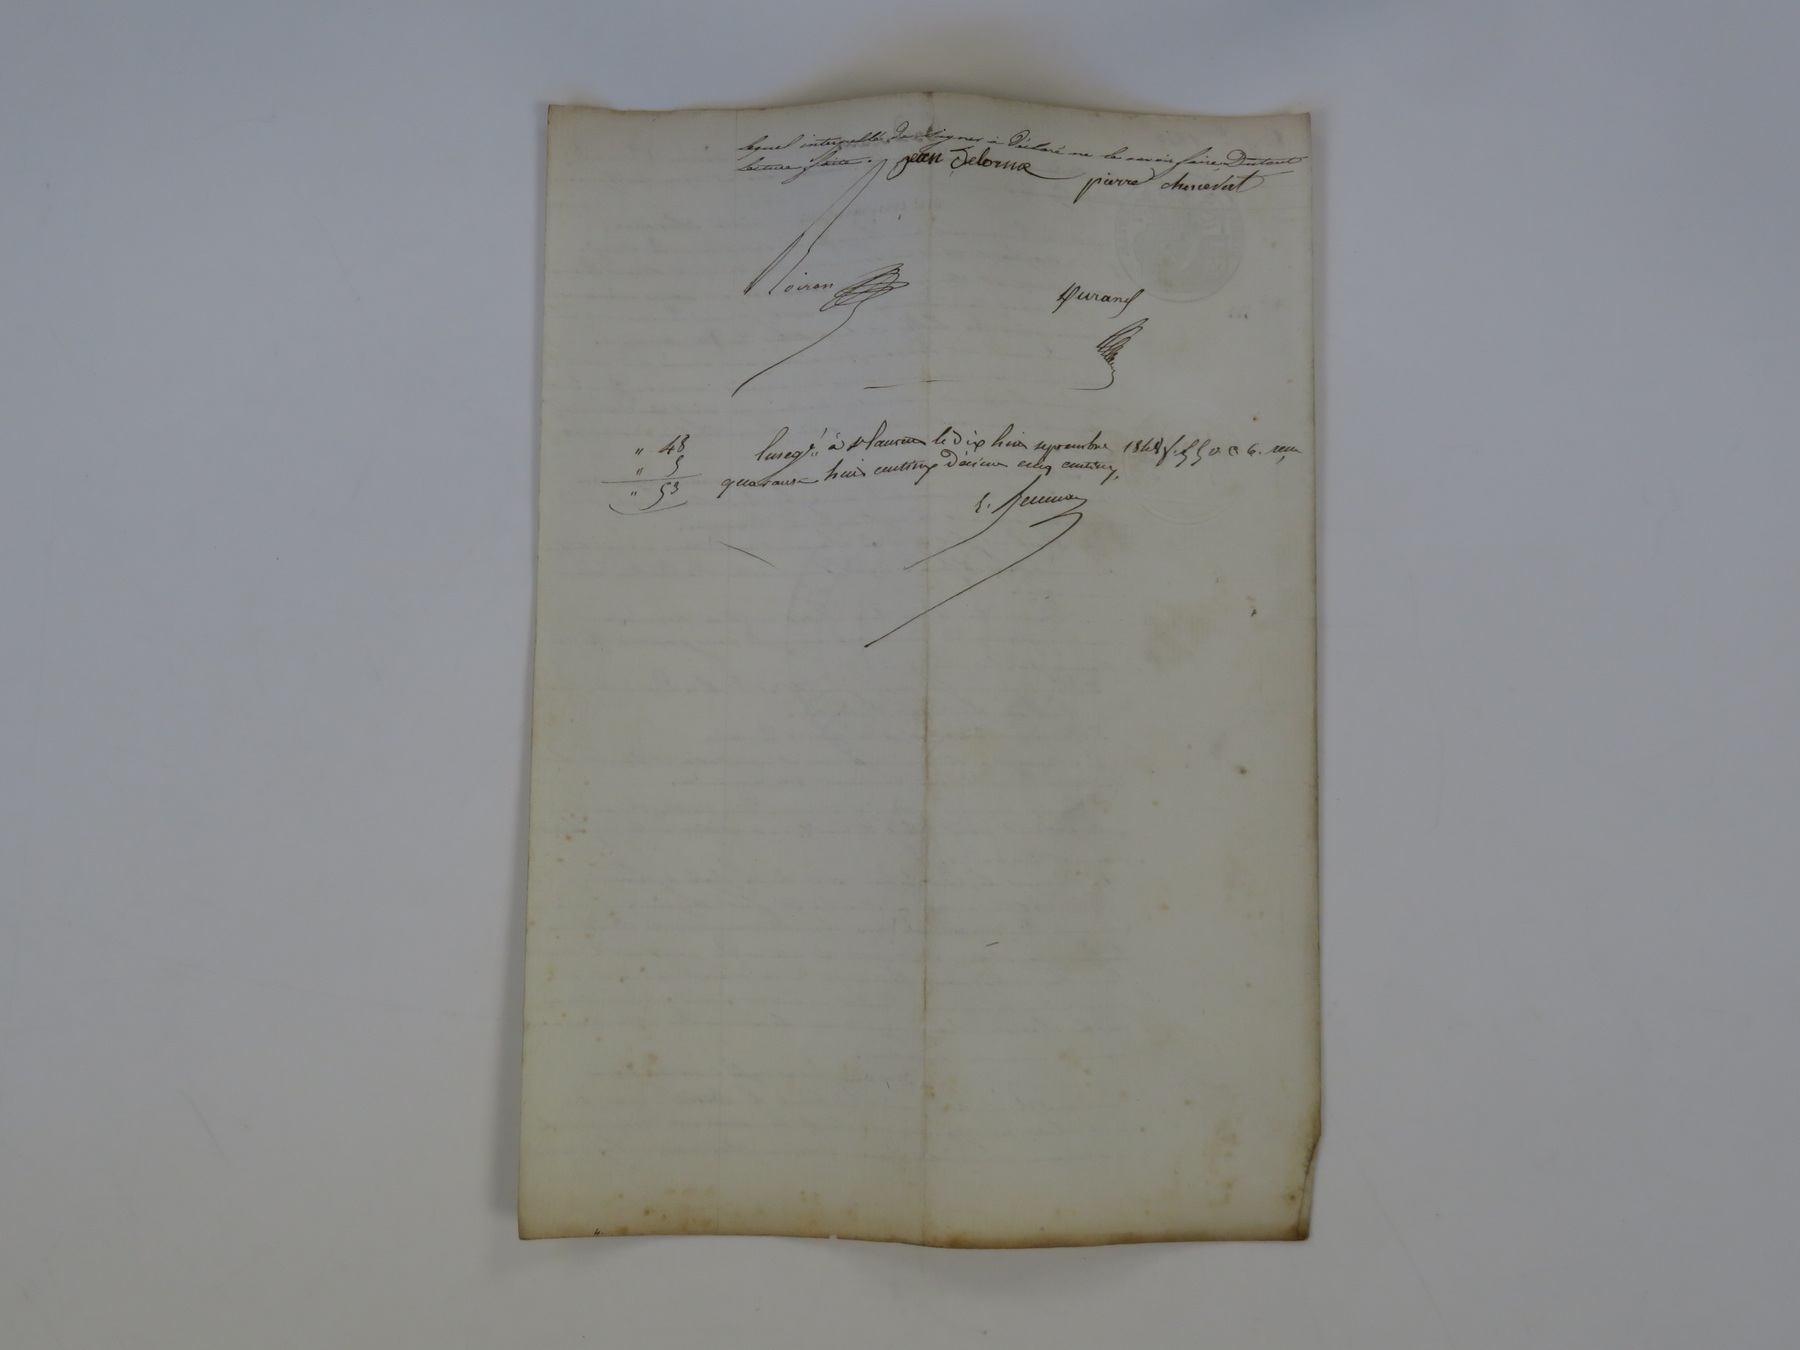 lequel interpellé de signer a déclaré ne le savoir faire, Dutout
lecture faite. jean Delorme
pierre chenevat
Loiron
Durand
" 48
" 5
" 53
Enregé à St laurent le dix huit septembre 1848 f. 55 v c 6. reçu
quarante huit centimes Décime cinq centimes